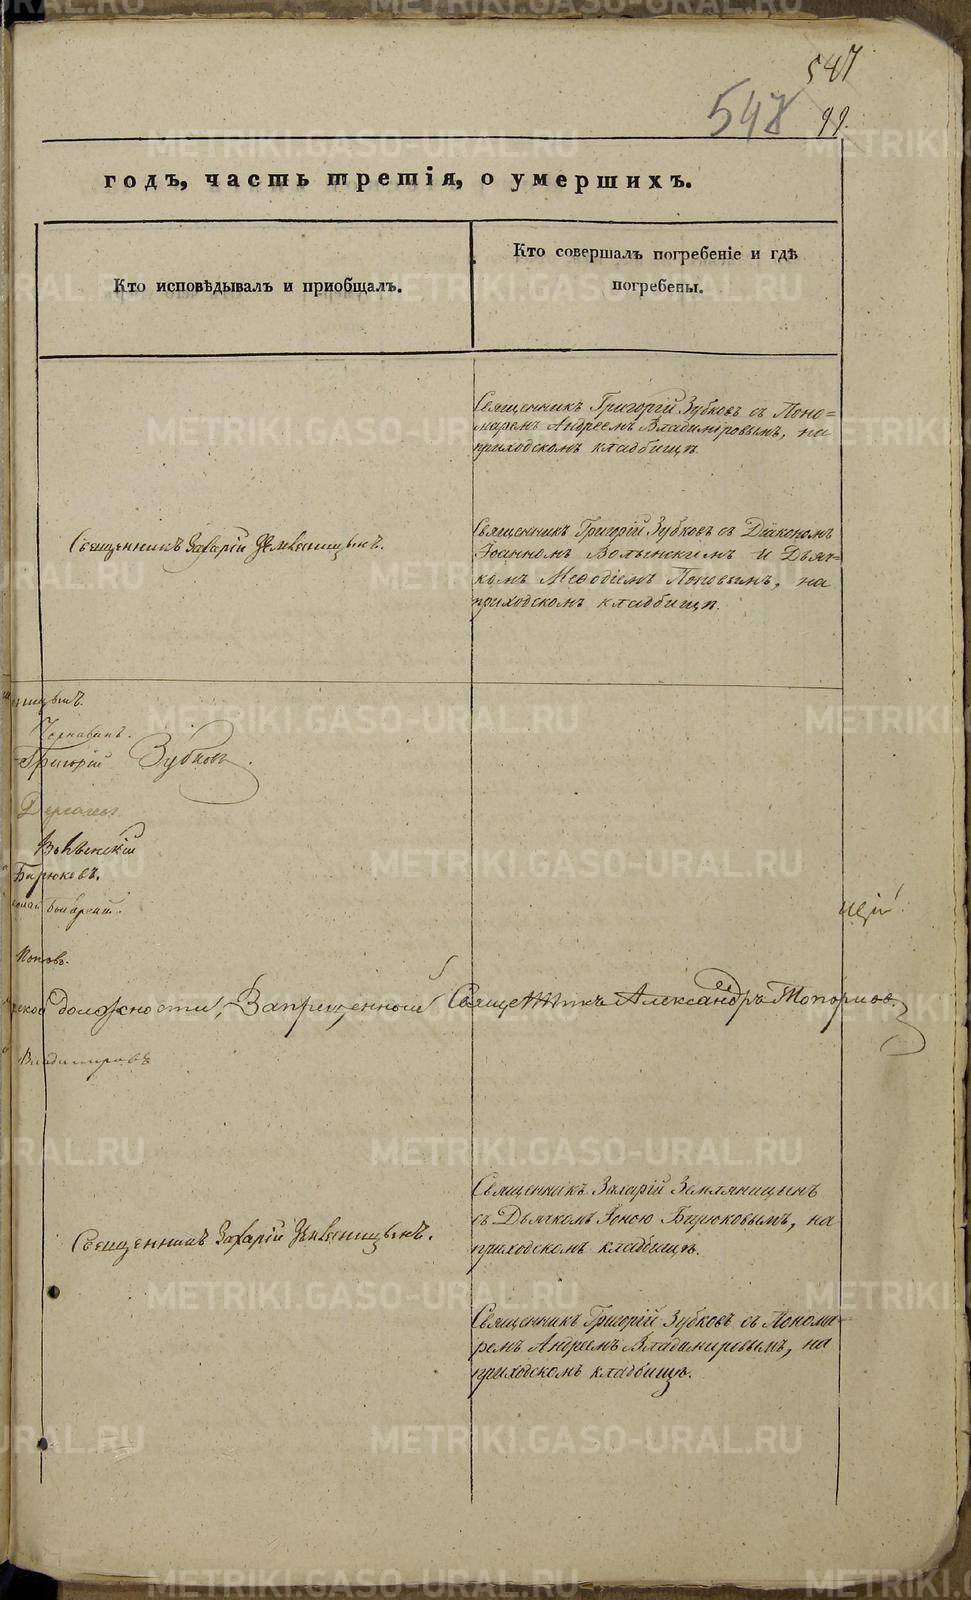 547
548 99.
годъ, часть третія, о умершихъ.
Кто исповѣдывалъ и приобщалъ.
Кто совершалъ погребеніе и гдѣ
погребены.
Священникъ Григорій Зубковъ съ Поно=
маремъ Андреемъ Владиміровымъ, на
приходскомъ кладбищѣ
Священникъ Захарій Земляницынъ.
Священникъ Григорій Зубковъ съ Діакономъ
Іоанномъ Волынскимъ и Дьяч=
комъ Меѳодіемъ Поповымъ, на
приходскомъ кладбищѣ.
ницынъ.
Григорій Зубковъ.
Волынскій
Бирюковъ.
Поповъ.
должности, Запрещенный Священникъ Александръ Топорковъ
Владимировъ
Священникъ Захарій Земляницынъ.
Священникъ Захарій Земляницынъ
съ Дьячкомъ Іоною Бирюковымъ, на
приходскомъ кладбищѣ.
Священникъ Григорій Зубковъ съ Понома=
ремъ Андреемъ Владимировымъ, на
приходскомъ кладбищѣ.
METRIKI.GASO-URAL.RU